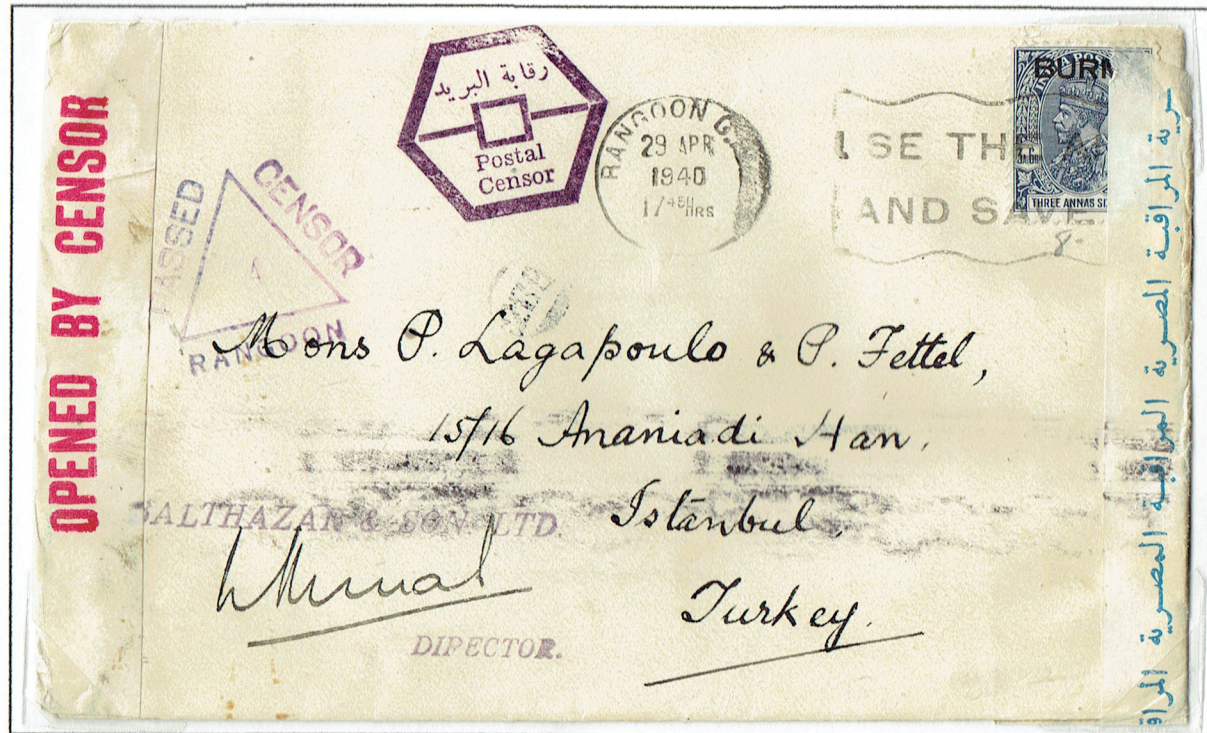 OPENED BY CENSOR
PASSED
CENSOR
RANGOON
رقابة البريد
Postal
Censor
RANGOON G.
29 APR
1940
17 45H
HRS
SE TH
AND SAVE
BURM
THREE ANNAS SI
8-
Mons P. Lagapoulo & P. Fettel,
15/16 Ananiadi Han.
Istanbul,
Turkey.
BALTHAZAR & SON. LTD.
DIRECTOR.
المراقبة المصرية المراقبة المصرية